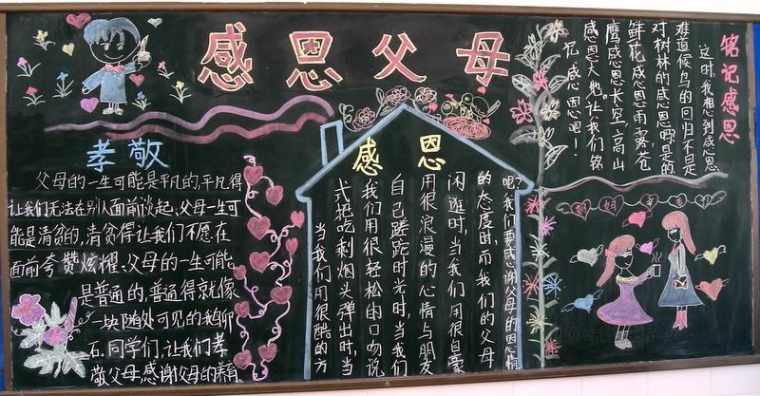 感恩父母
孝敬
父母的一生可能是平凡的,平凡得
让我们无法在别人面前谈起、父母一生可
能是清贫的,清贫得让我们不愿在
面前夸赞炫耀、父母的一生可能
是普通的,普通得就像
一块随处可见的鹅卵
石.同学们,让我们孝
敬父母,感谢父母的养育
感恩
当我们用很酷的方
式把吃剩烟头弹出时,当
我们用很轻松的口吻说
自己蹉跎时光时,当我们
用很浪漫的心情与朋友
闲逛时,当我们用很自豪
的态度时,而我们的父母
呢?我们要感谢父母的恩情
铭记感恩
这时,我想到感恩
难道候鸟的回归不是
对树林的感恩吗?是的
鲜花感恩雨露,苍
鹰感恩长空,高山
感恩大地。让我们铭
记感恩吧!